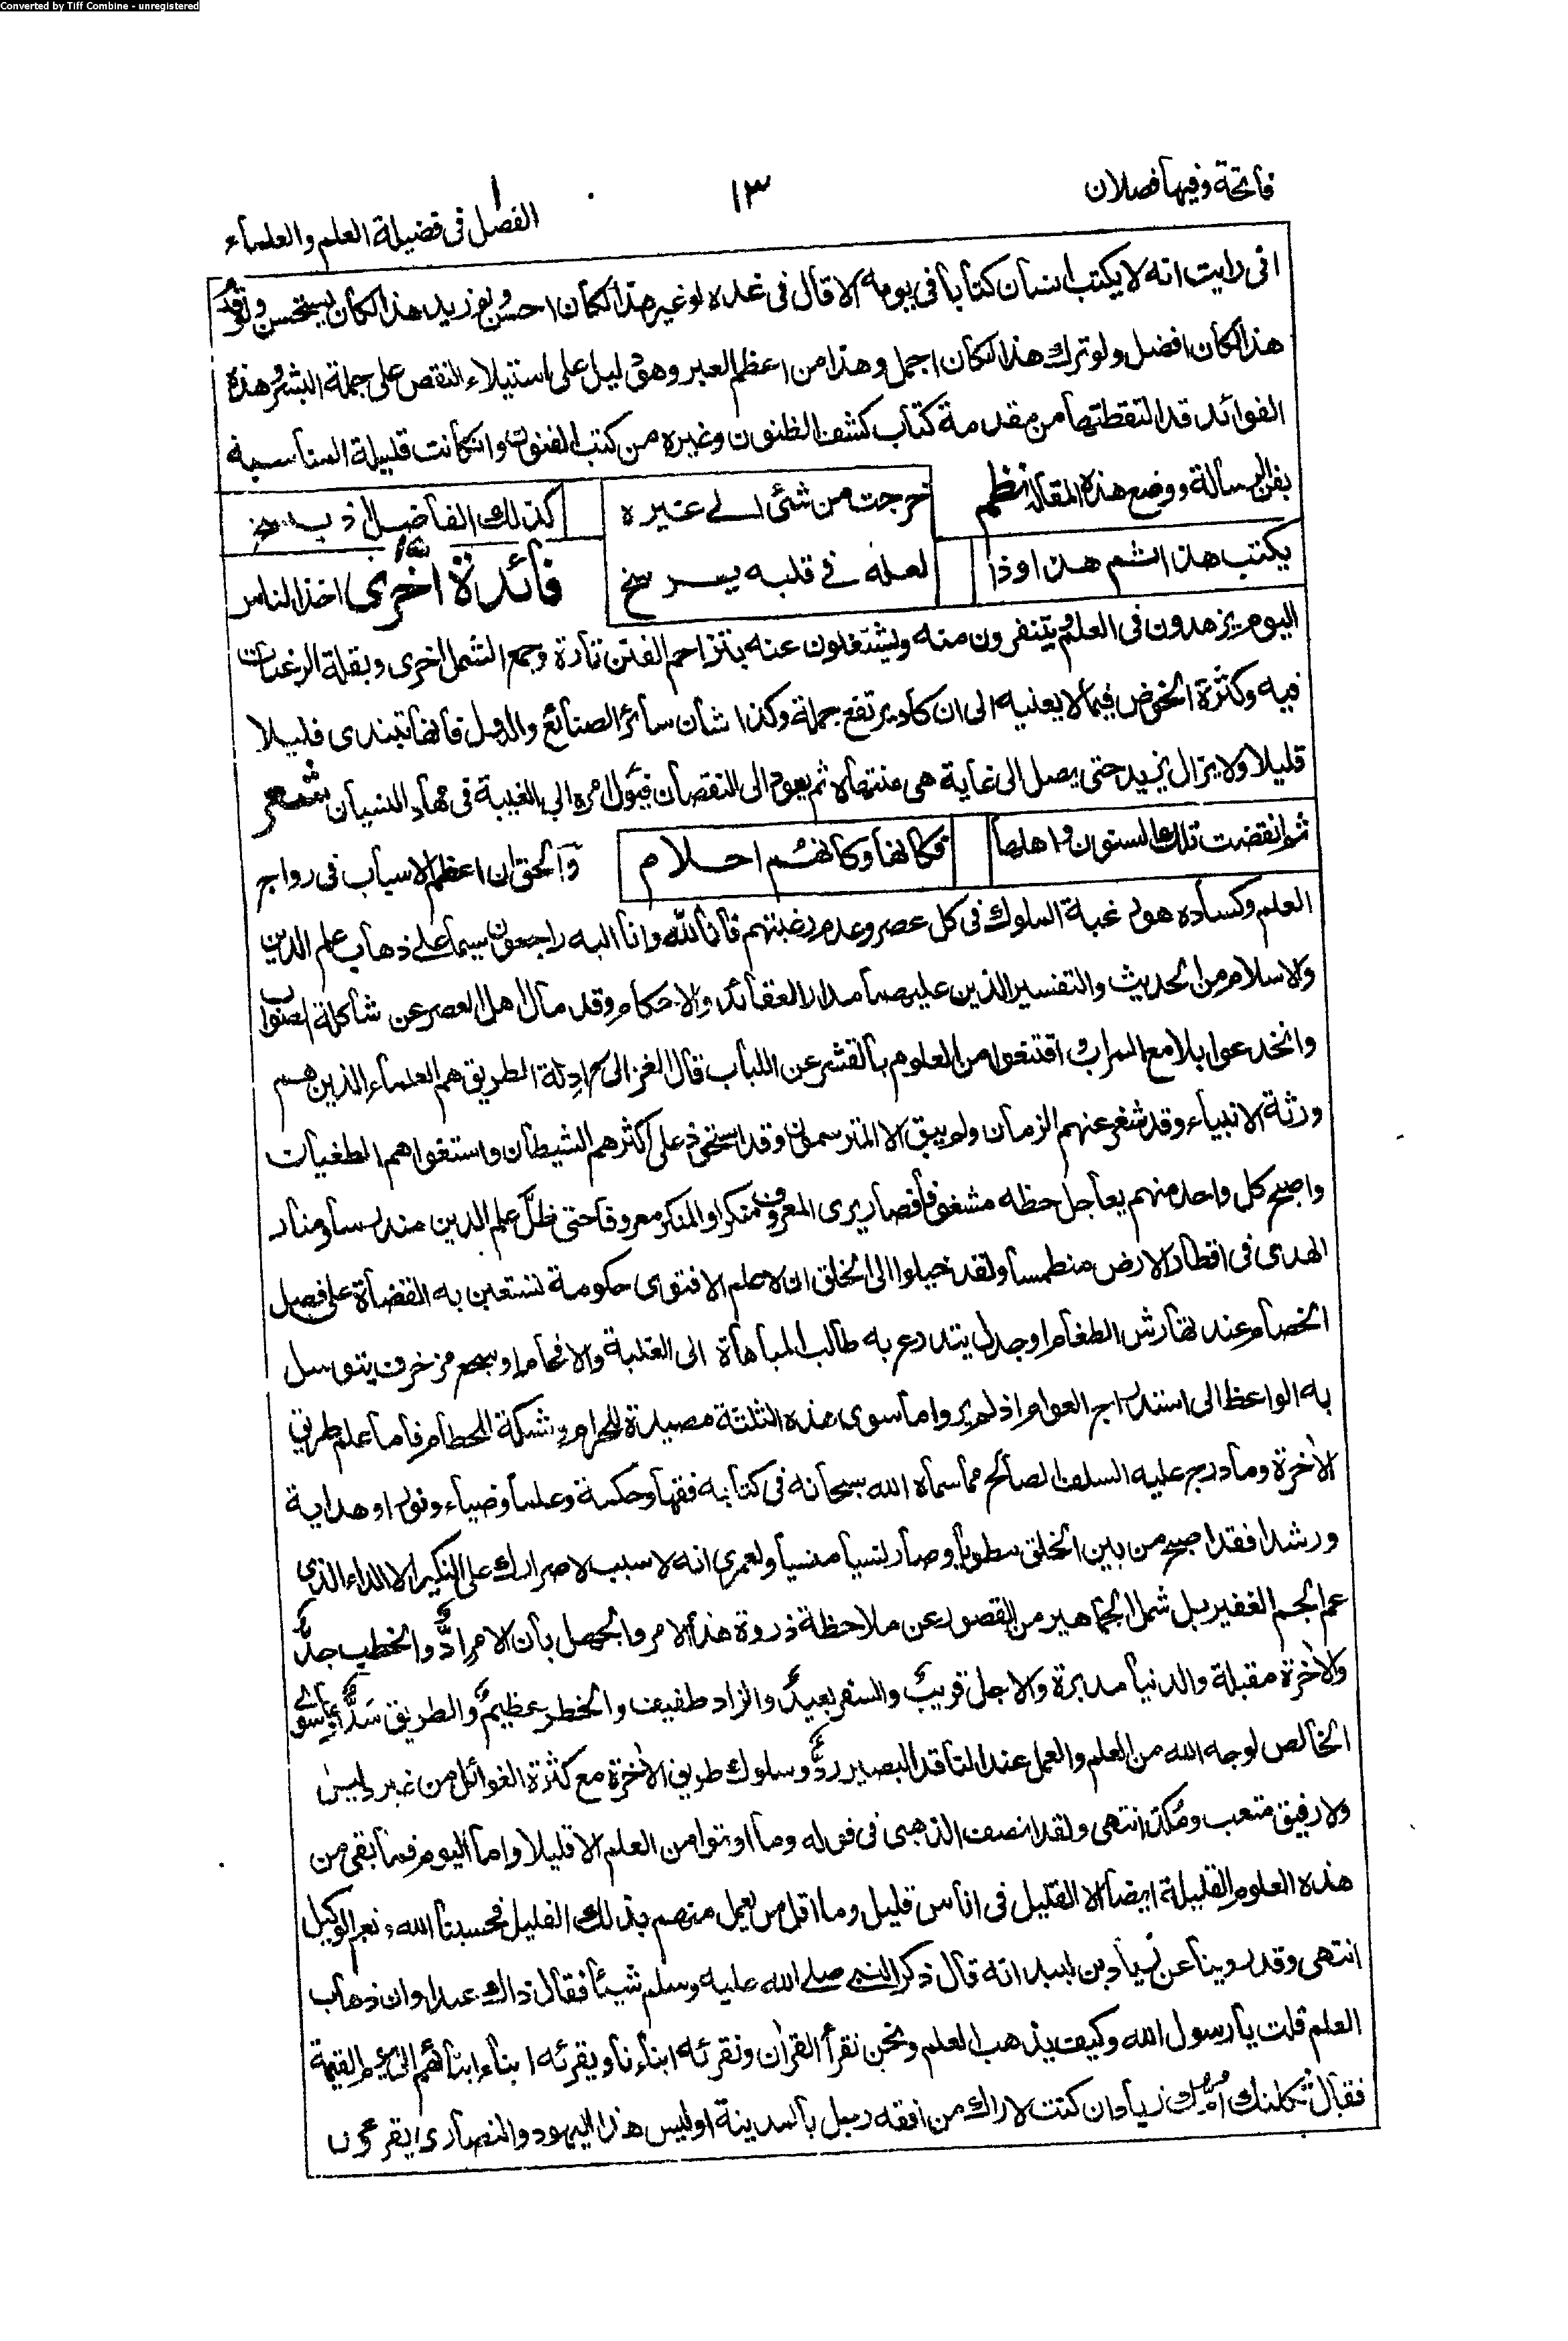 Converted by Tiff Combine - unregistered
فاتحة وفيها فصلان
١٣
الفصل ١ فى فضيلة العلم والعلماء
انى رايت انه لا يكتب انسان كتابا فى يومه الا قال فى غده لو غير هذا لكان احسن ولو زيد هذا لكان يستحسن ولو قدم
هذا لكان افضل ولو ترك هذا لكان اجمل وهذا من اعظم العبر وهو دليل على استيلاء النقص على جملة البشر وهذه
الفوائد قد التقطتها من مقدمة كتاب كشف الظنون وغيره من كتب الفنون وان كانت قليلة المناسبة
بفن الرسالة ووضع هذه المقالة نظم
خرجت من شئ الى غيره
كذلك الفاضل اذ ينسخ
يكتب هذا ثم هذا وذا
لعله فى قلبه يرسخ
فائدة اخرى اخذ الناس
اليوم يزهدون فى العلم ويتنفرون منه ويشتغلون عنه بتزاحم الفتن تارة وجمع الشمل اخرى وبقلة الرغبات
فيه وكثرة الخوض فيما لا يعنيه الى ان كاد يرتفع جملة وكذا شان سائر الصنائع والدول فانها تبتدى قليلا
قليلا ولا يزال يزيد حتى يصل الى غاية هى منتهاه ثم يعود الى النقصان فيؤل امره الى الغيبة فى مهاد النسيان شعر
ثم انقضت تلك السنون واهلها
فكانها وكانهم احلام
والحق ان اعظم الاسباب فى رواج
العلم وكساده هو رغبة الملوك فى كل عصر وعدم رغبتهم فانا لله وانا اليه راجعون سيما على ذهاب علم الدين
والاسلام من الحديث والتفسير الذين عليهما مدار العقائد والاحكام وقد مال اهل العصر عن شاكلة الصواب
وانخدعوا بلامع السراب واقتنعوا من العلوم بالقشر عن اللباب قال الغزالى رح ادلة الطريق هم العلماء الذين هم
ورثة الانبياء وقد شغر عنهم الزمان ولم يبق الا المترسمون وقد استحوذ على اكثرهم الشيطان واستغواهم الطغيان
واصبح كل واحد منهم يعاجل حظه مشغوفا فصار يرى المعروف منكرا والمنكر معروفا حتى ظل علم الدين مندرسا ومنار
الهدى فى اقطار الارض منطمسا ولقد خيلوا الى الخلق ان لا علم الا فتوى حكومة تستعين به القضاة على فصل
الخصام عند تهارش الطغام او جدل يتدرع به طالب المباهاة الى الغلبة والافحام او سجع مزخرف يتوسل
به الواعظ الى استدراج العوام اذ لم يروا ما سوى هذه الثلثة مصيدة للحرام وشبكة للحطام فاما علم طريق
الاخرة وما درج عليه السلف الصالح مما سماه الله سبحانه فى كتابه فقها وحكمة وعلما وضياء ونورا وهداية
ورشدا فقد اصبح من بين الخلق مطويا وصار نسيا منسيا ولعمرى انه لا سبب لاصرارك على النكير الا الداء الذى
عم الجم الغفير بل شمل الجماهير من القصور عن ملاحظة ذروة هذا الامر والجهل بان الامر اد والخطب جد
والاخرة مقبلة والدنيا مدبرة والاجل قريب والسفر بعيد والزاد طفيف والخطر عظيم والطريق سد وما سوى
الخالص لوجه الله من العلم والعمل عند الناقد البصير رد وسلوك طريق الاخرة مع كثرة الغوائل من غير دليل
ولا رفيق متعب ومكد انتهى ولقد انصف الذهبى فى قوله وما اوتوا من العلم الا قليلا واما اليوم فما بقى من
هذه العلوم القليلة ايضا الا القليل فى اناس قليل وما اقل من يعمل منهم بذلك القليل فحسبنا الله ونعم الوكيل
انتهى وقد روينا عن زياد بن لبيد انه قال ذكر النبى صلى الله عليه وسلم شيئا فقال ذاك عند اوان ذهاب
العلم قلت يا رسول الله وكيف يذهب العلم ونحن نقرأ القران ونقرئه ابناءنا ويقرئه ابناء ابنائهم الى يوم القيمة
فقال ثكلتك امك زياد ان كنت لاراك من افقه رجل بالمدينة اوليس هذا اليهود والنصارى يقرءون